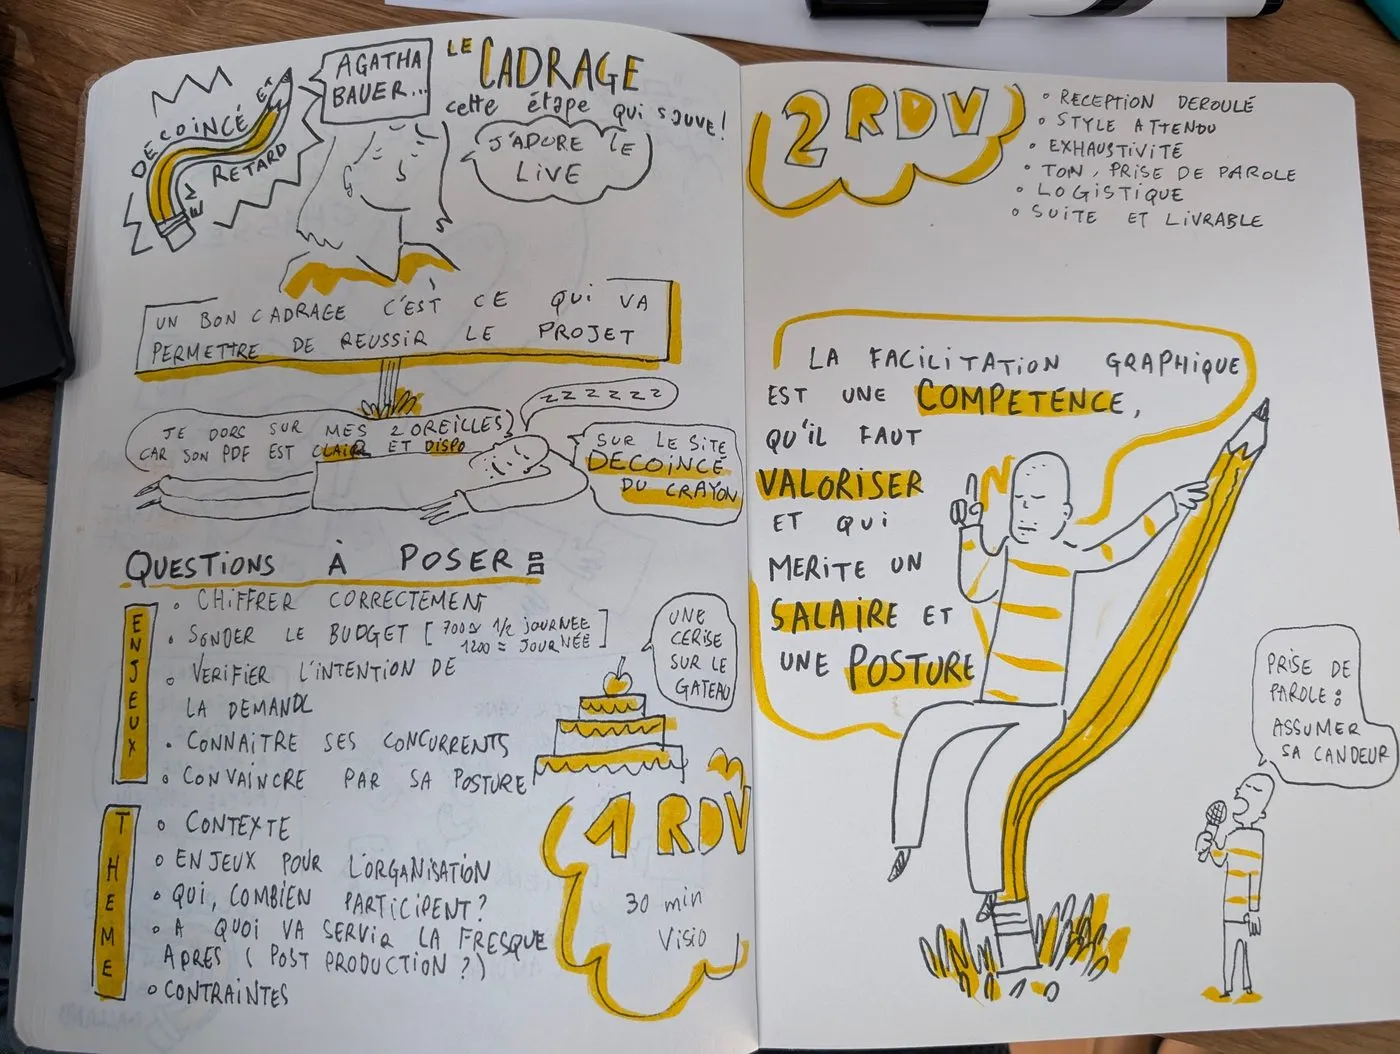 DECOINCÉ ET
EN RETARD
AGATHA
BAUER...
LE CADRAGE
cette étape qui sauve!
J'ADORE LE
LIVE
UN BON CADRAGE C'EST CE QUI VA
PERMETTRE DE REUSSIR LE PROJET
ZZZZZZZ
JE DORS SUR MES 2 OREILLES
CAR SON PDF EST CLAIR ET DISPO
SUR LE SITE
DECOINCE
DU CRAYON
QUESTIONS À POSER :
ENJEUX
• CHIFFRER CORRECTEMENT
• SONDER LE BUDGET [ 700 ≈ 1/2 JOURNÉE
1200 = JOURNÉE ]
• VERIFIER L'INTENTION DE
LA DEMANDE
• CONNAITRE SES CONCURRENTS
• CONVAINCRE PAR SA POSTURE
UNE
CERISE
SUR LE
GATEAU
THEME
• CONTEXTE
• ENJEUX POUR L'ORGANISATION
• QUI, COMBIEN PARTICIPENT ?
• A QUOI VA SERVIR LA FRESQUE
APRES ( POST PRODUCTION ? )
• CONTRAINTES
1 RDV
30 min
Visio
2 RDV
• RECEPTION DEROULÉ
• STYLE ATTENDU
• EXHAUSTIVITE
• TON, PRISE DE PAROLE
• LOGISTIQUE
• SUITE ET LIVRABLE
LA FACILITATION GRAPHIQUE
EST UNE COMPETENCE,
QU'IL FAUT
VALORISER
ET QUI
MERITE UN
SALAIRE ET
UNE POSTURE
PRISE DE
PAROLE :
ASSUMER
SA CANDEUR